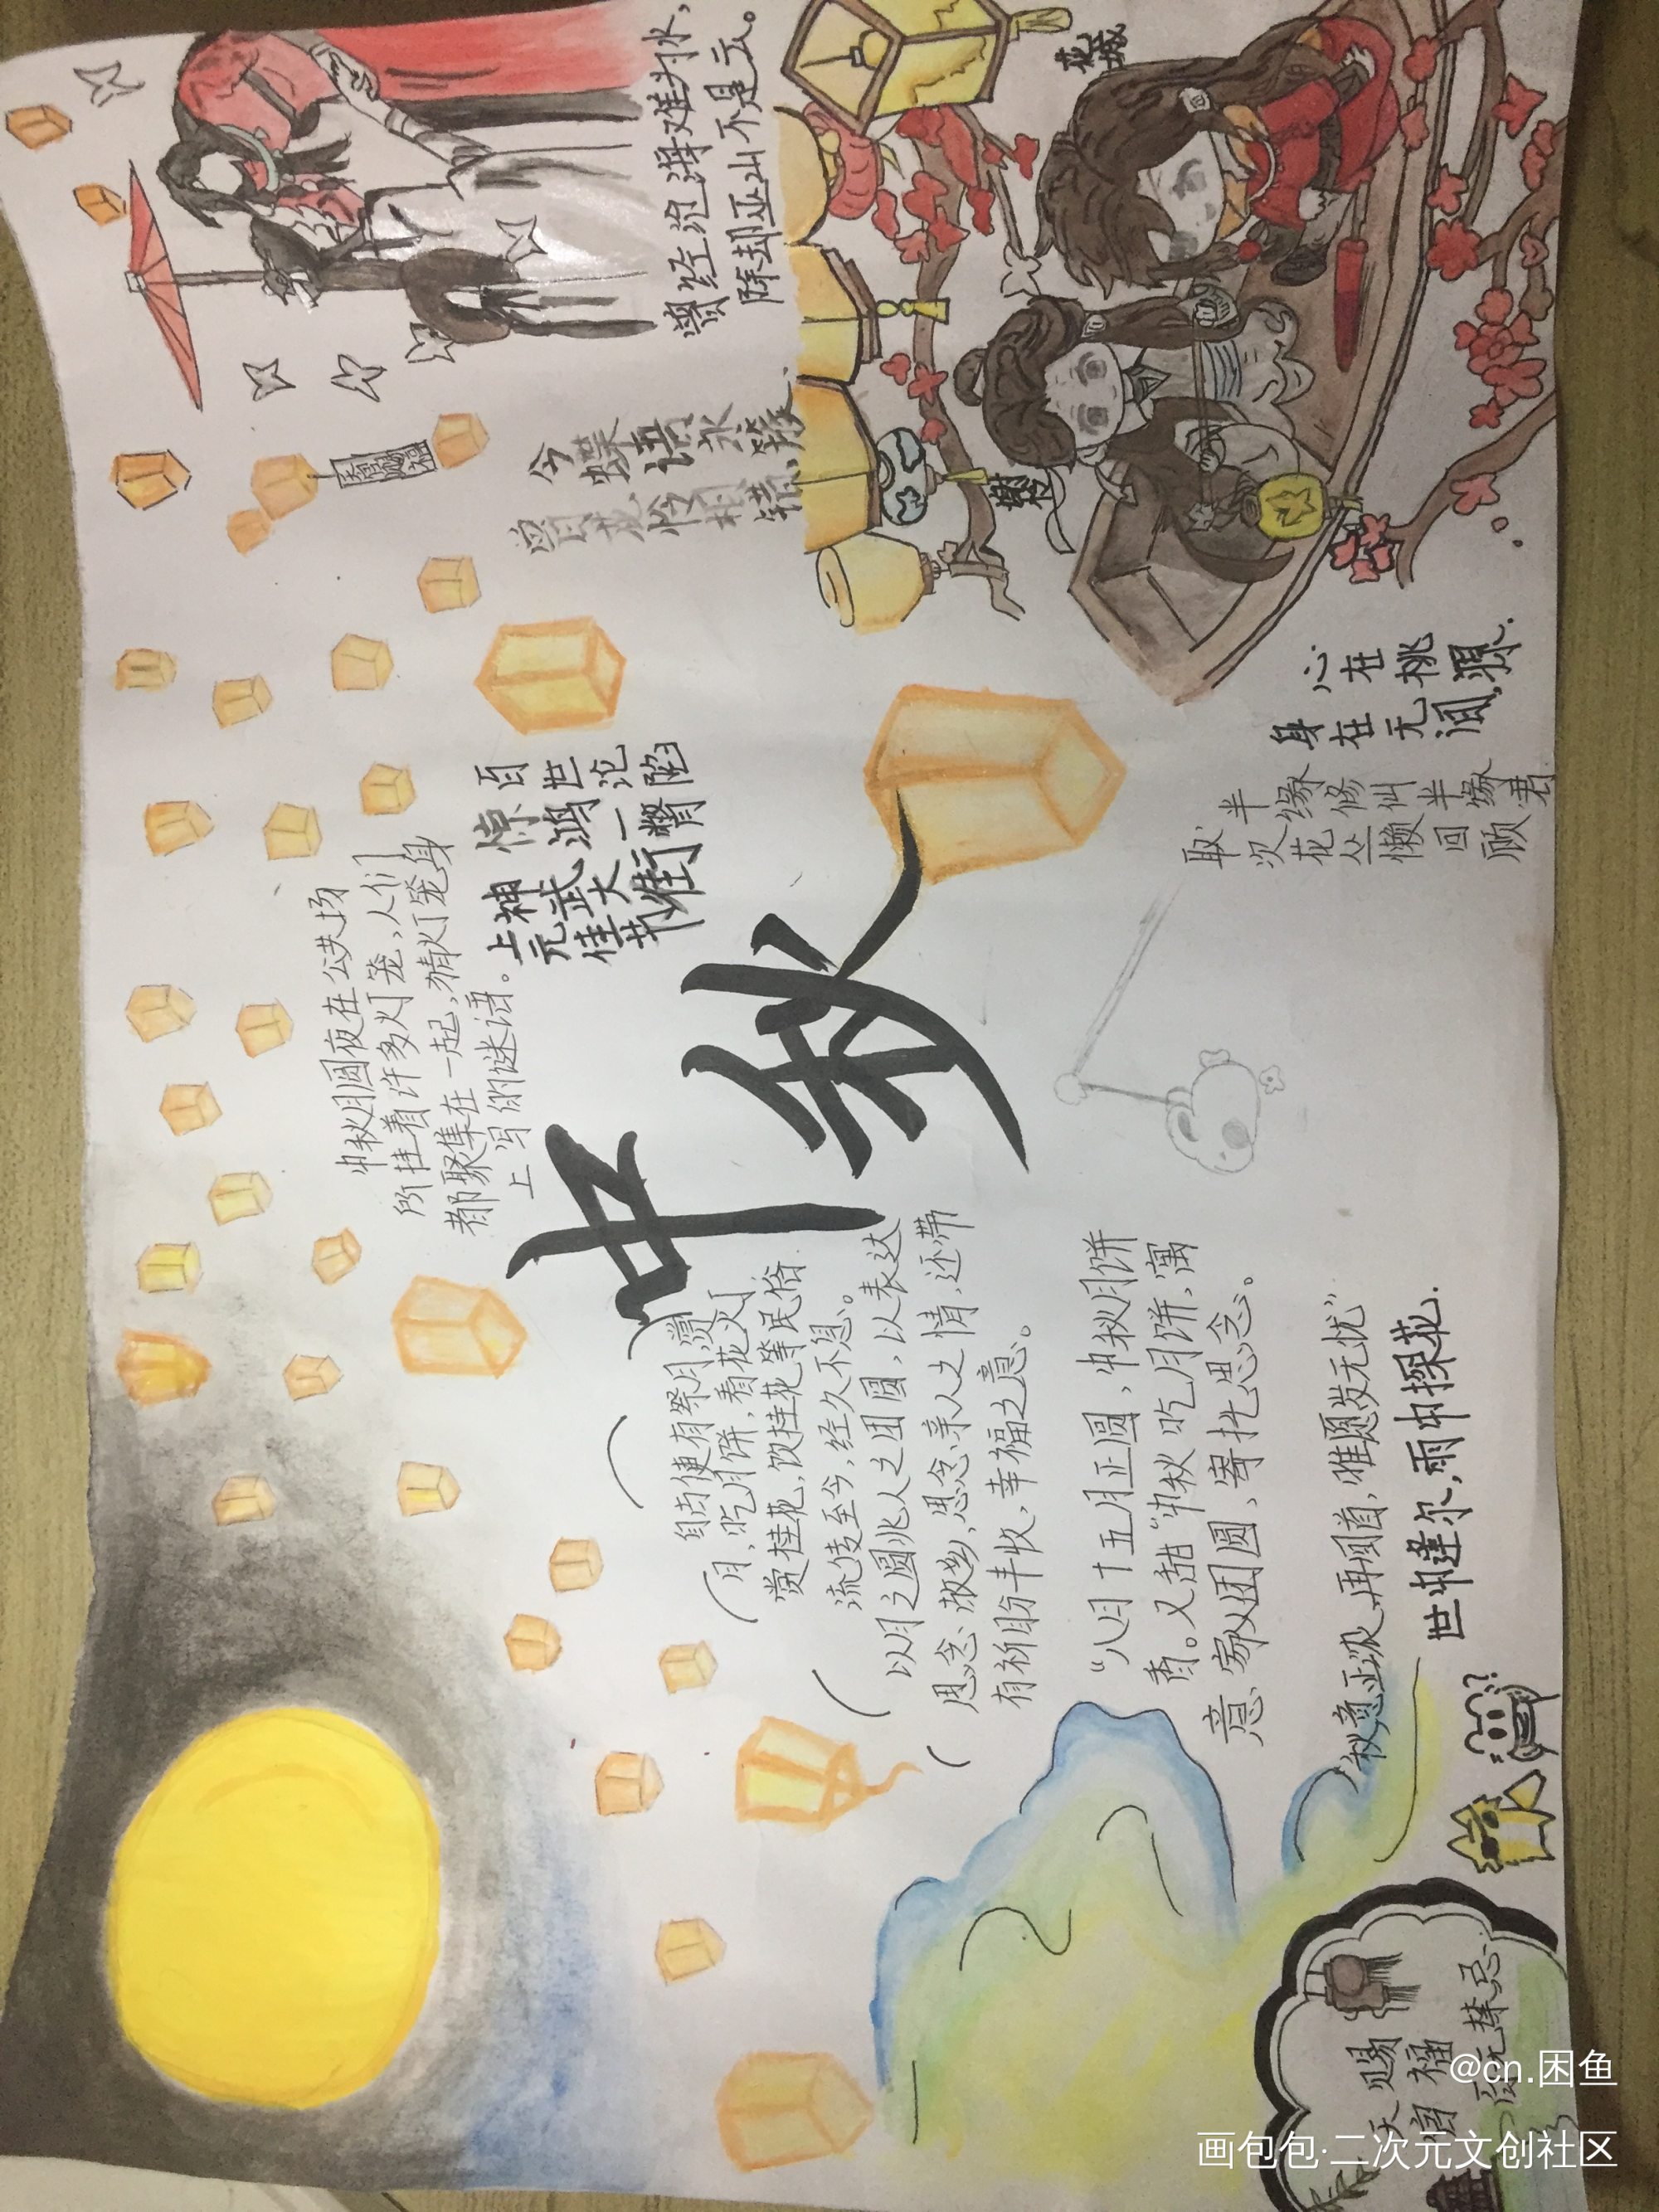 中秋
中秋月圆夜在公共场
所挂着许多灯笼，人们
都聚集在一起，猜灯笼身
上写的谜语。
自古便有祭月，赏
月，吃月饼，看花灯
赏桂花，饮桂花等民俗
流传至今，经久不息。
以月之圆兆人之团圆，以表达
思念故乡，思念亲人之情，还带
有祈盼丰收、幸福之意。
“八月十五月正圆，中秋月饼
香又甜”中秋吃月饼，寓
意、家人团圆、寄托思念。
“秋意正浓再回首，唯愿岁无忧”
世中逢尔，雨中探花.
天赐
官福
百无禁忌.
上元佳节
神武大街
惊鸿一瞥
百世沦陷
曾经沧海难为水，
除却巫山不是云。
今蝶语永发、
曾目花怜相错、
花城
谢怜
身在无间，
心在桃源.
取次花丛懒回顾
半缘修仙半缘君
@cn.困鱼
画包包·二次元文创社区